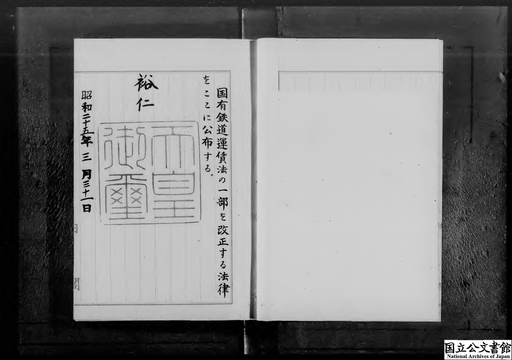 国有鉄道運賃法の一部を改正する法律
をここに公布する。
裕仁
天皇
御璽
昭和二十五年三月三十一日
国立公文書館
National Archives of Japan